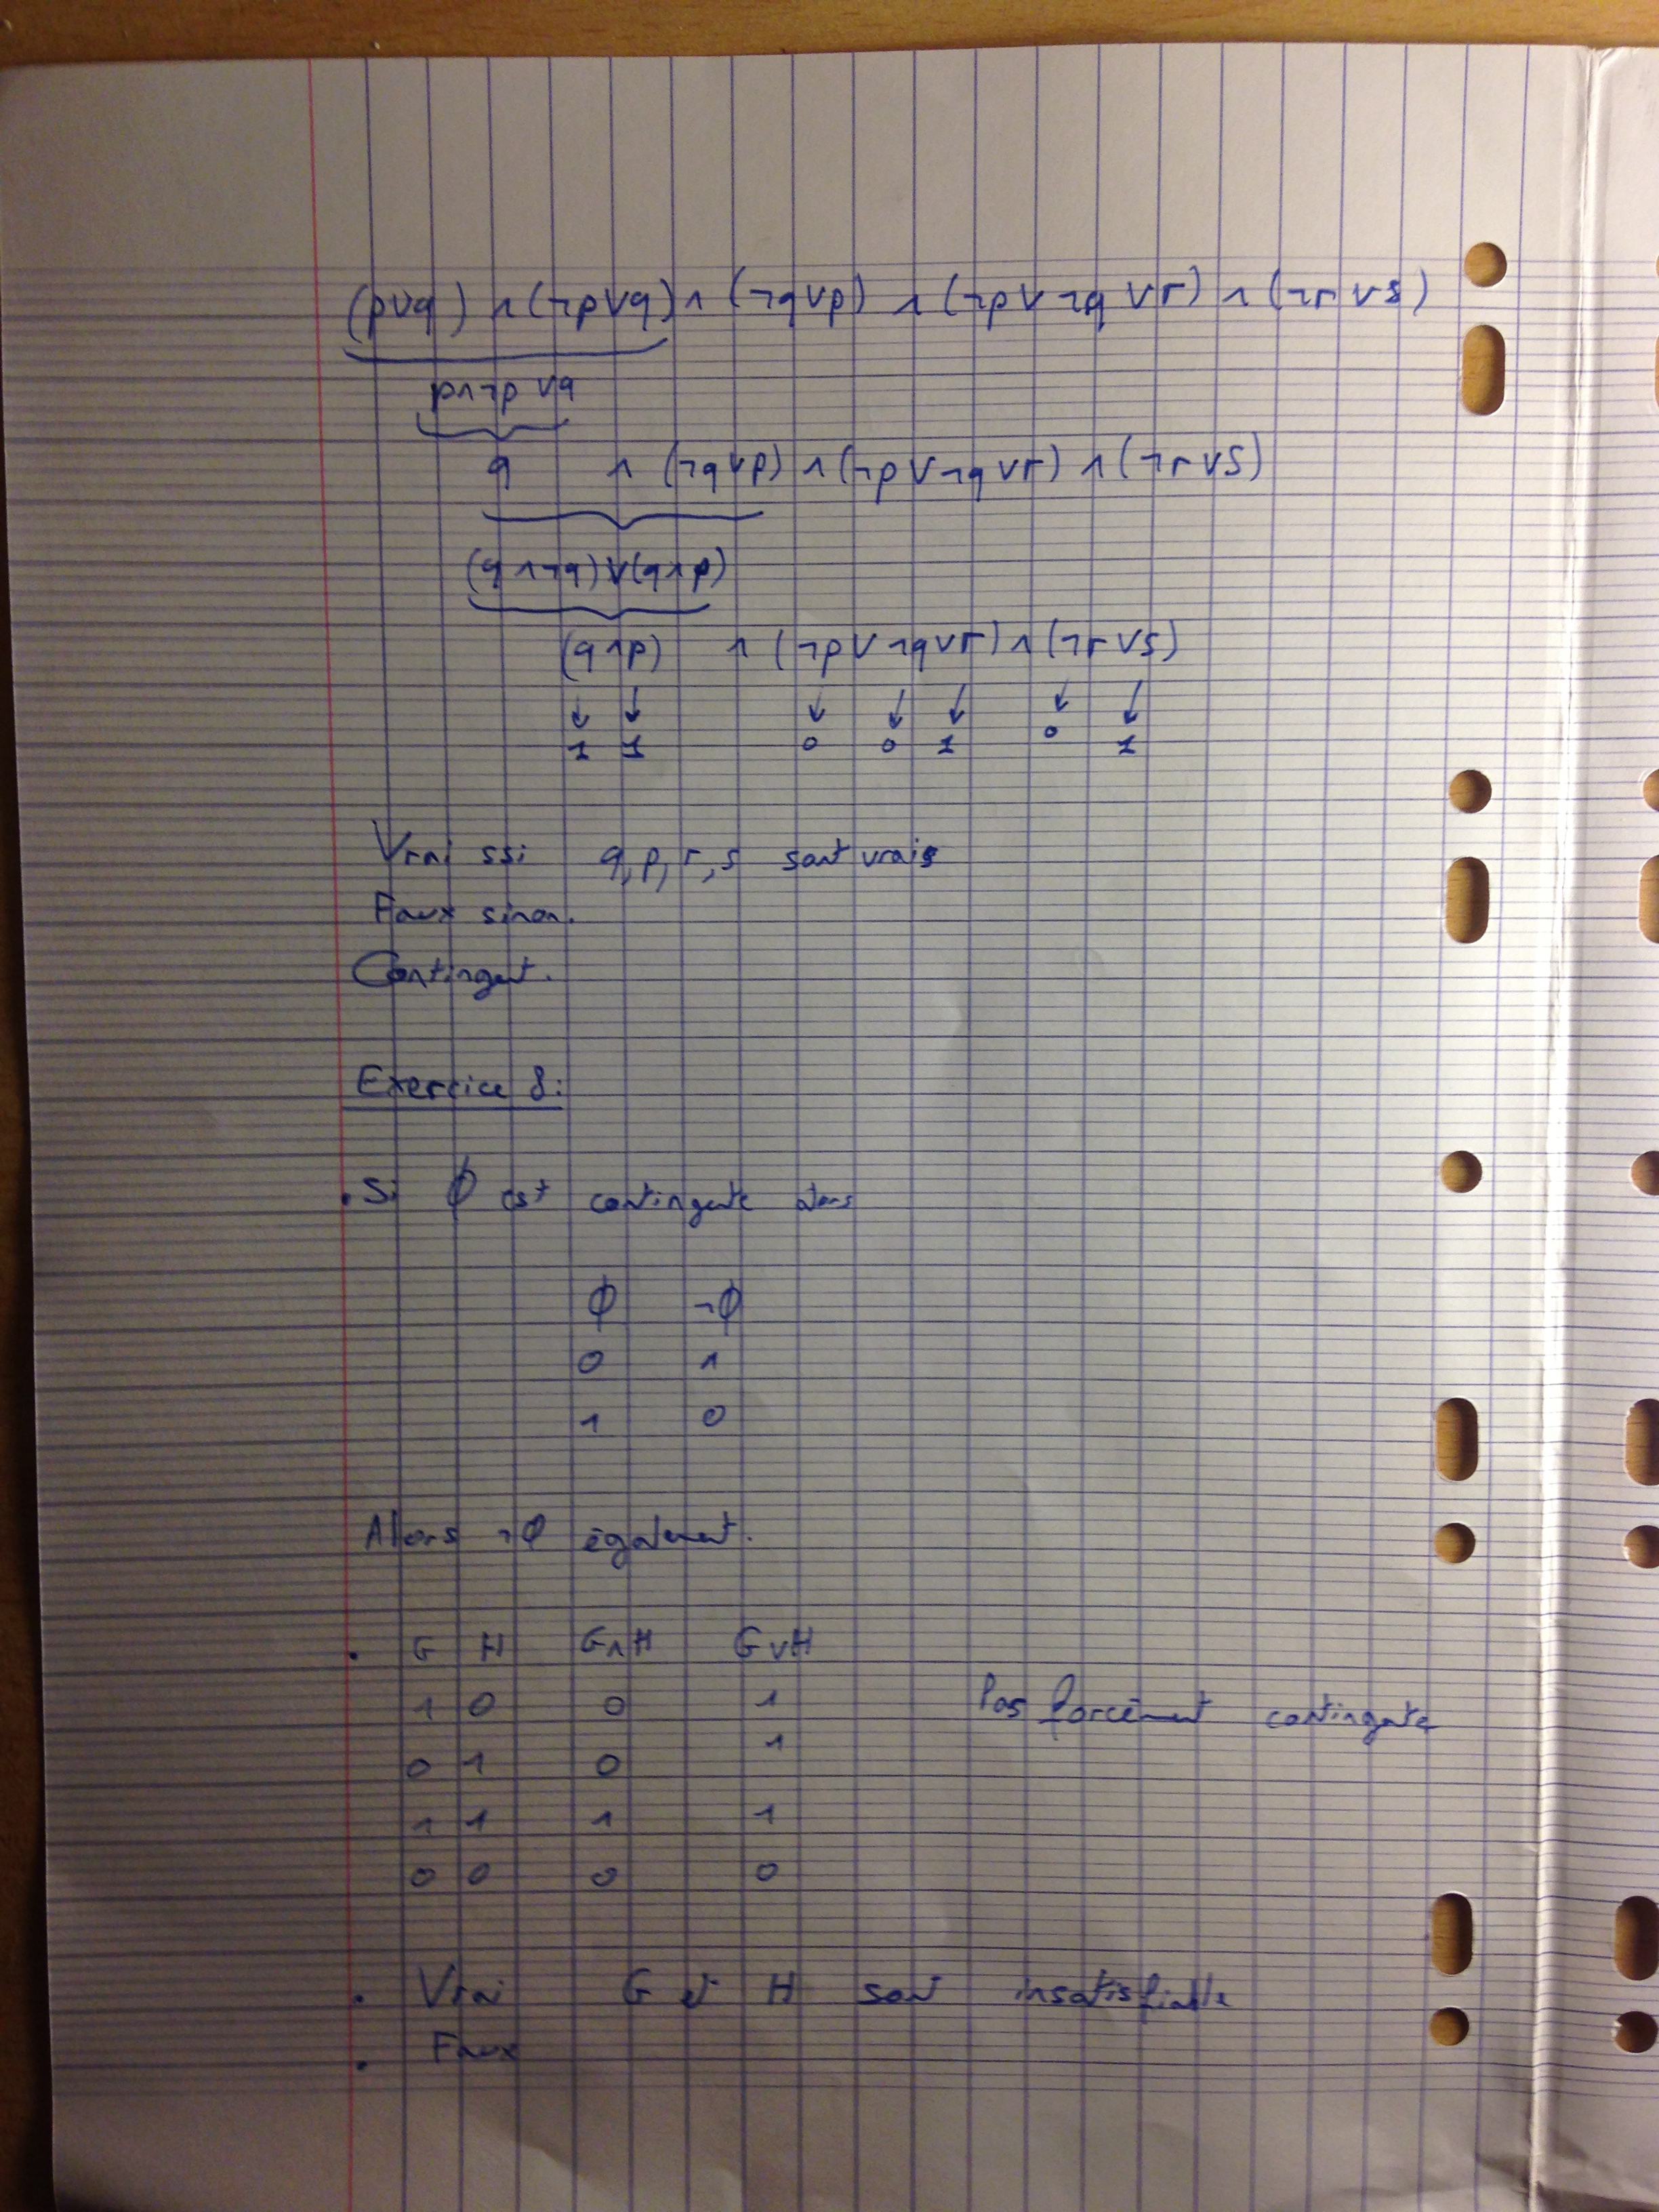 (p∨q) ∧ (¬p∨q) ∧ (¬q∨p) ∧ (¬p∨¬q∨r) ∧ (¬r∨s)
p∧¬p ∨q
q ∧ (¬q∨p) ∧ (¬p∨¬q∨r) ∧ (¬r∨s)
(q∧¬q)∨(q∧p)
(q∧p) ∧ (¬p∨¬q∨r) ∧ (¬r∨s)
↓ ↓ ↓ ↓ ↓ ↓ ↓
1 1 0 0 1 0 1
Vrai ssi q, p, r, s sont vrais
Faux sinon.
Contingent.
Exercice 8:
. Si ϕ est contingente alors
ϕ ¬ϕ
0 1
1 0
Alors ¬ϕ également.
. G H G∧H G∨H
1 0 0 1 Pas forcément contingente
0 1 0 1
1 1 1 1
0 0 0 0
. Vrai G et H sont insatisfiable
. Faux